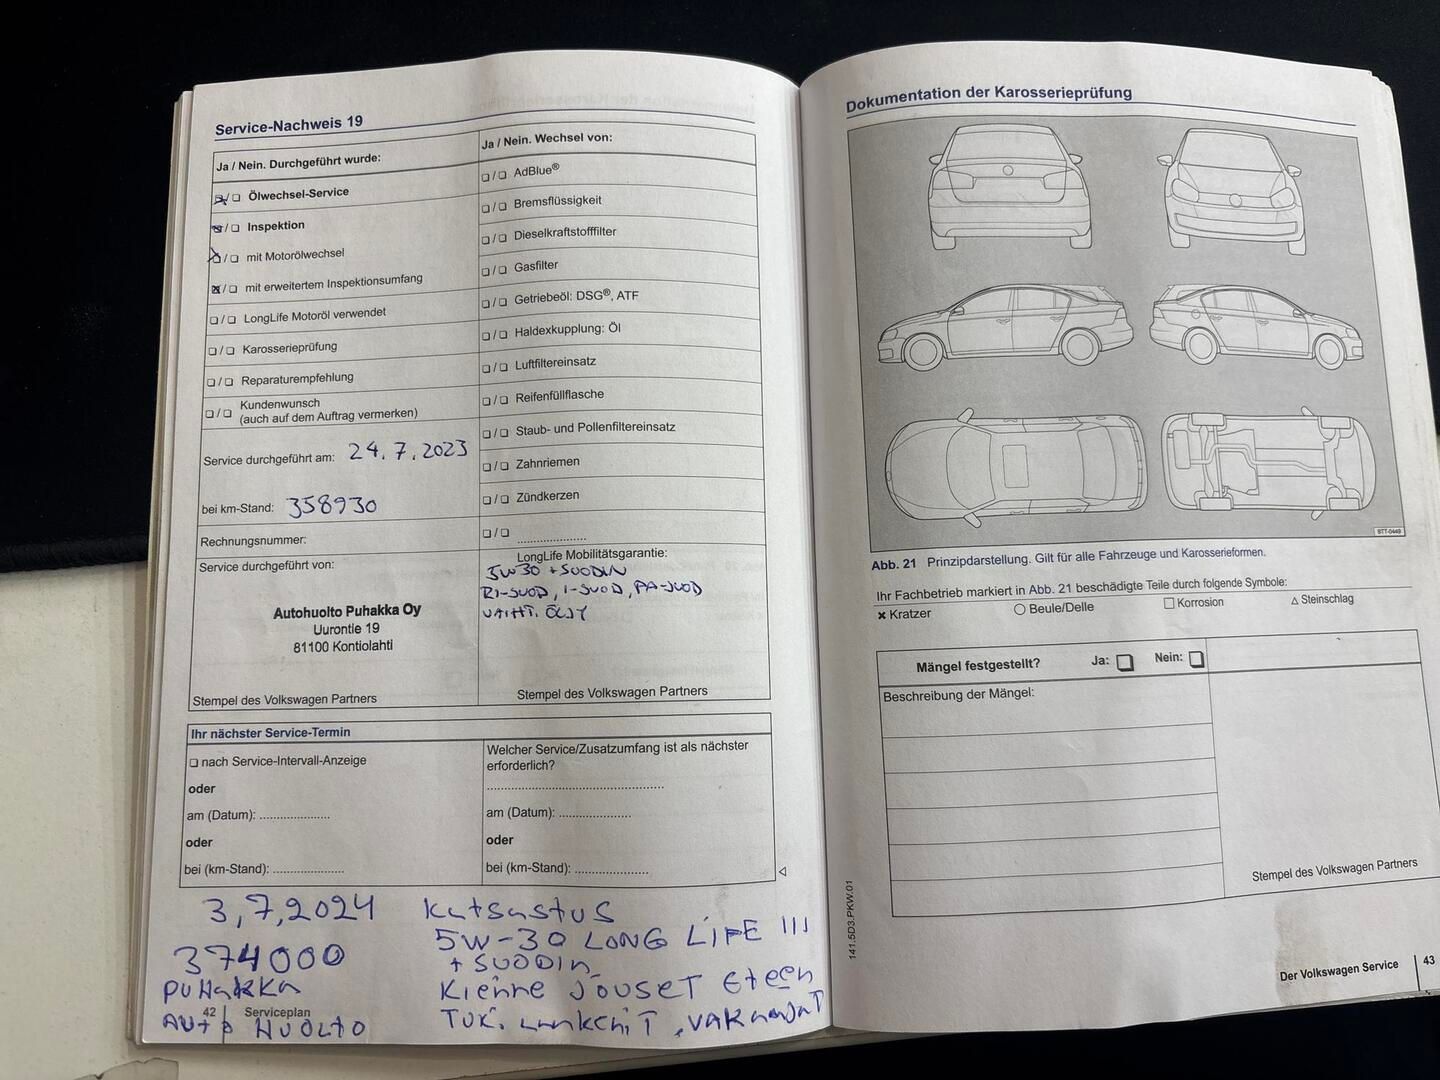 Service-Nachweis 19
Ja / Nein. Durchgeführt wurde:
Ölwechsel-Service
Inspektion
mit Motorölwechsel
mit erweitertem Inspektionsumfang
LongLife Motoröl verwendet
Karosserieprüfung
Reparaturempfehlung
Kundenwunsch
(auch auf dem Auftrag vermerken)
Service durchgeführt am: 24.7.2023
bei km-Stand: 358930
Rechnungsnummer:
Service durchgeführt von:
Autohuolto Puhakka Oy
Uurontie 19
81100 Kontiolahti
Stempel des Volkswagen Partners
Ja / Nein. Wechsel von:
AdBlue®
Bremsflüssigkeit
Dieselkraftstofffilter
Gasfilter
Getriebeöl: DSG®, ATF
Haldexkupplung: Öl
Luftfiltereinsatz
Reifenfüllflasche
Staub- und Pollenfiltereinsatz
Zahnriemen
Zündkerzen
LongLife Mobilitätsgarantie:
5W30 + SUODIN
RI-SUOD, I-SUOD, PA-SUOD
VAIHT. ÖLJY
Stempel des Volkswagen Partners
Ihr nächster Service-Termin
nach Service-Intervall-Anzeige
oder
am (Datum):
oder
bei (km-Stand):
Welcher Service/Zusatzumfang ist als nächster
erforderlich?
am (Datum):
oder
bei (km-Stand):
3,7,2024
374000
PUHAKKA
AUTO HUOLTO
Katsastus
5W-30 LONG LIFE III
+ SUODIN
Kierre JOUSET Eteen
TUK. , VAKAAJAT
42 | Serviceplan
Dokumentation der Karosserieprüfung
BTT-0449
Abb. 21 Prinzipdarstellung. Gilt für alle Fahrzeuge und Karosserieformen.
Ihr Fachbetrieb markiert in Abb. 21 beschädigte Teile durch folgende Symbole:
Kratzer
Beule/Delle
Korrosion
Steinschlag
Mängel festgestellt? Ja: Nein:
Beschreibung der Mängel:
Stempel des Volkswagen Partners
141.5D3.PKW.01
Der Volkswagen Service | 43